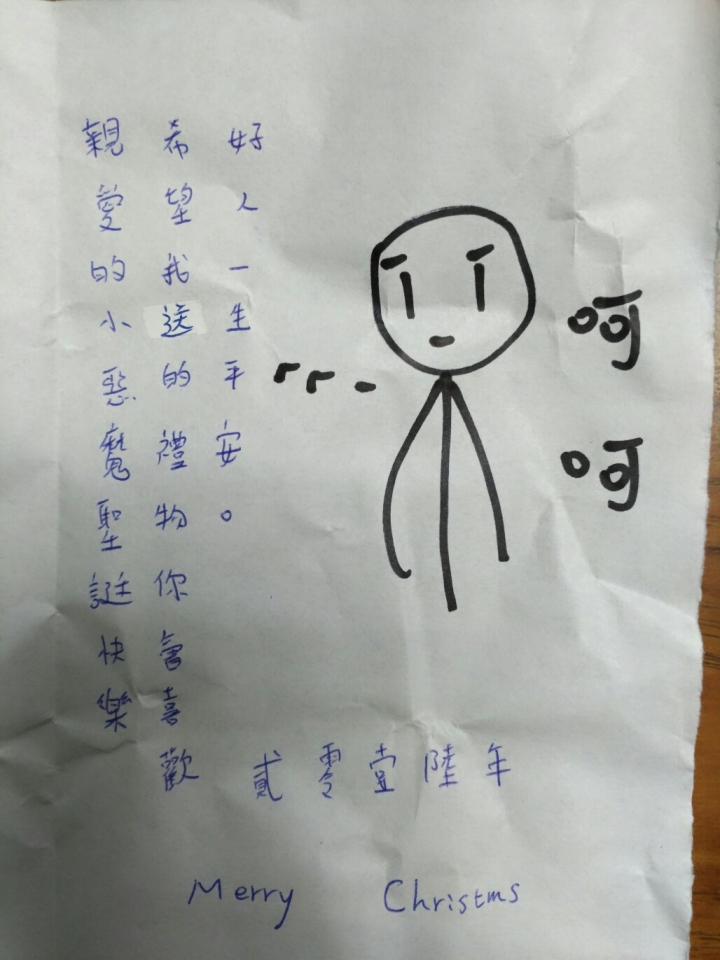 親愛的小惡魔聖誕快樂
希望我送的禮物你會喜歡
好人一生平安。
呵呵
貳零壹陸年
Merry Christms